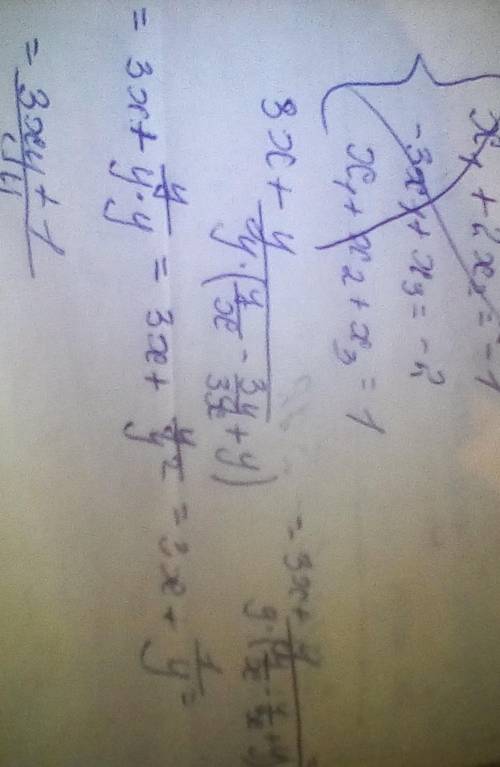 { x₁ + 2x₂ = -1
-3x₁ + x₃ = -2
x₁ + x₂ + x₃ = 1
3x + y/(y·(y/x - 3y/3x + y)) = 3x + y/(y·(y/x - y/x + y)) =
= 3x + y/(y·y) = 3x + y/y² = 3x + 1/y =
= (3xy + 1)/y